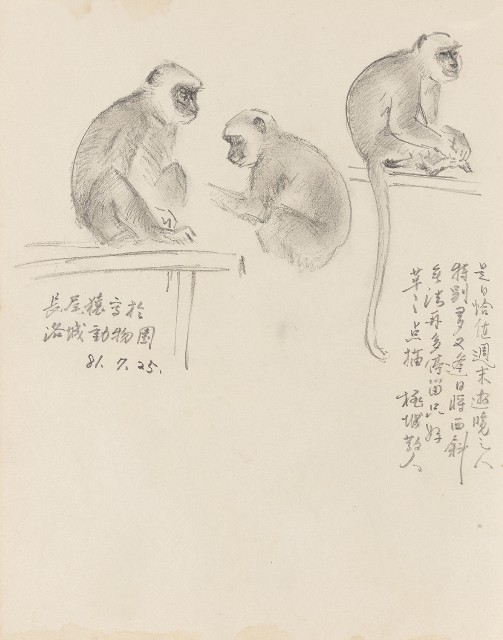 長尾猿寫於
洛城動物園
81.7.25.
是日恰值週末遊曉之人
特别多又逢日將西斜
無法再多停留只好
草草点描 極城散人